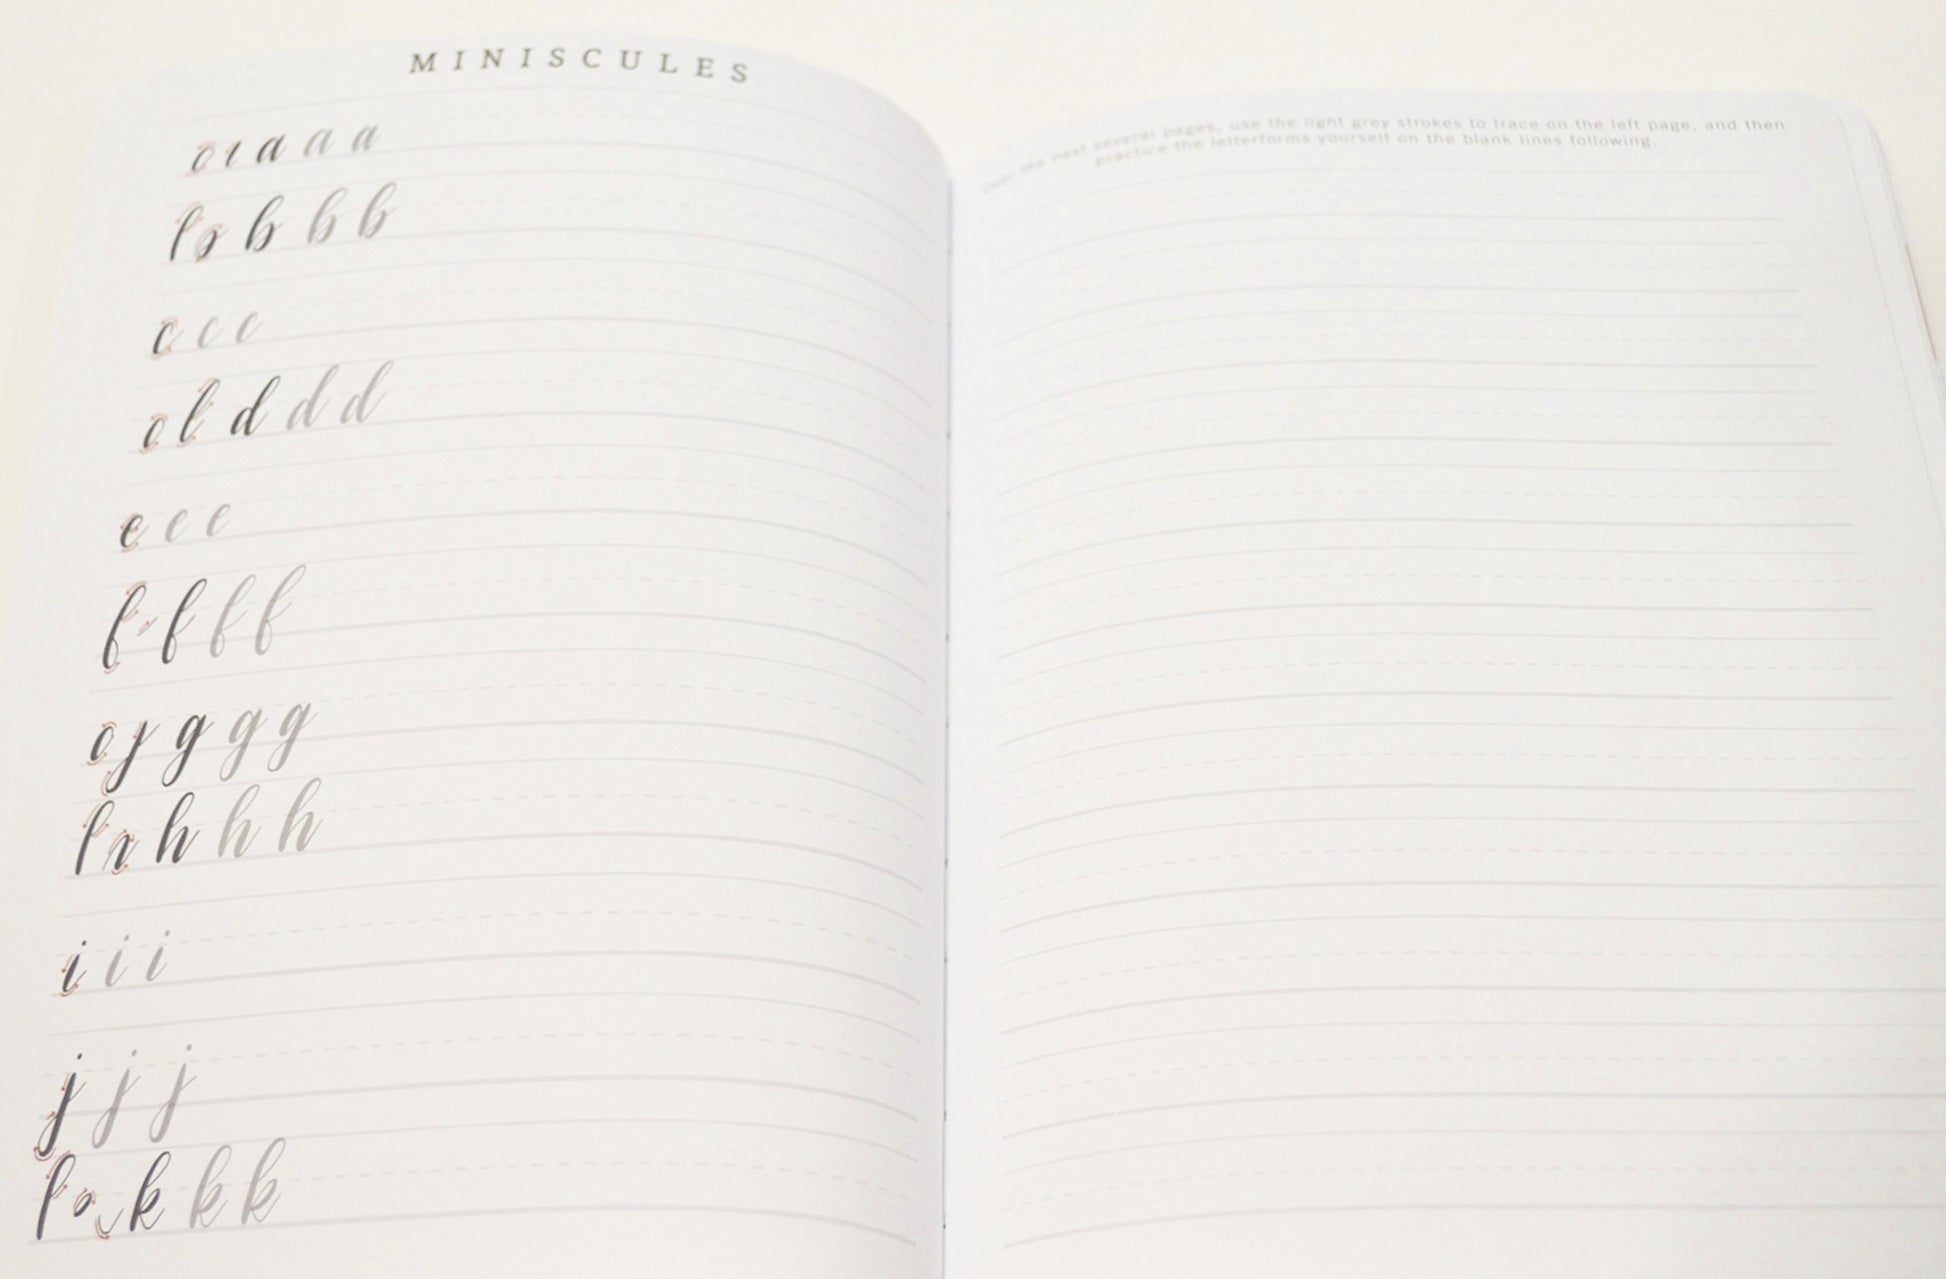 MINISCULES
a a a
b b b
c c c
d d d
e e e
f f f
g g g
h h h
i i i
j j j
k k k
Over the next several pages, use the light grey strokes to trace on the left page, and then
practice the letterforms yourself on the blank lines following.